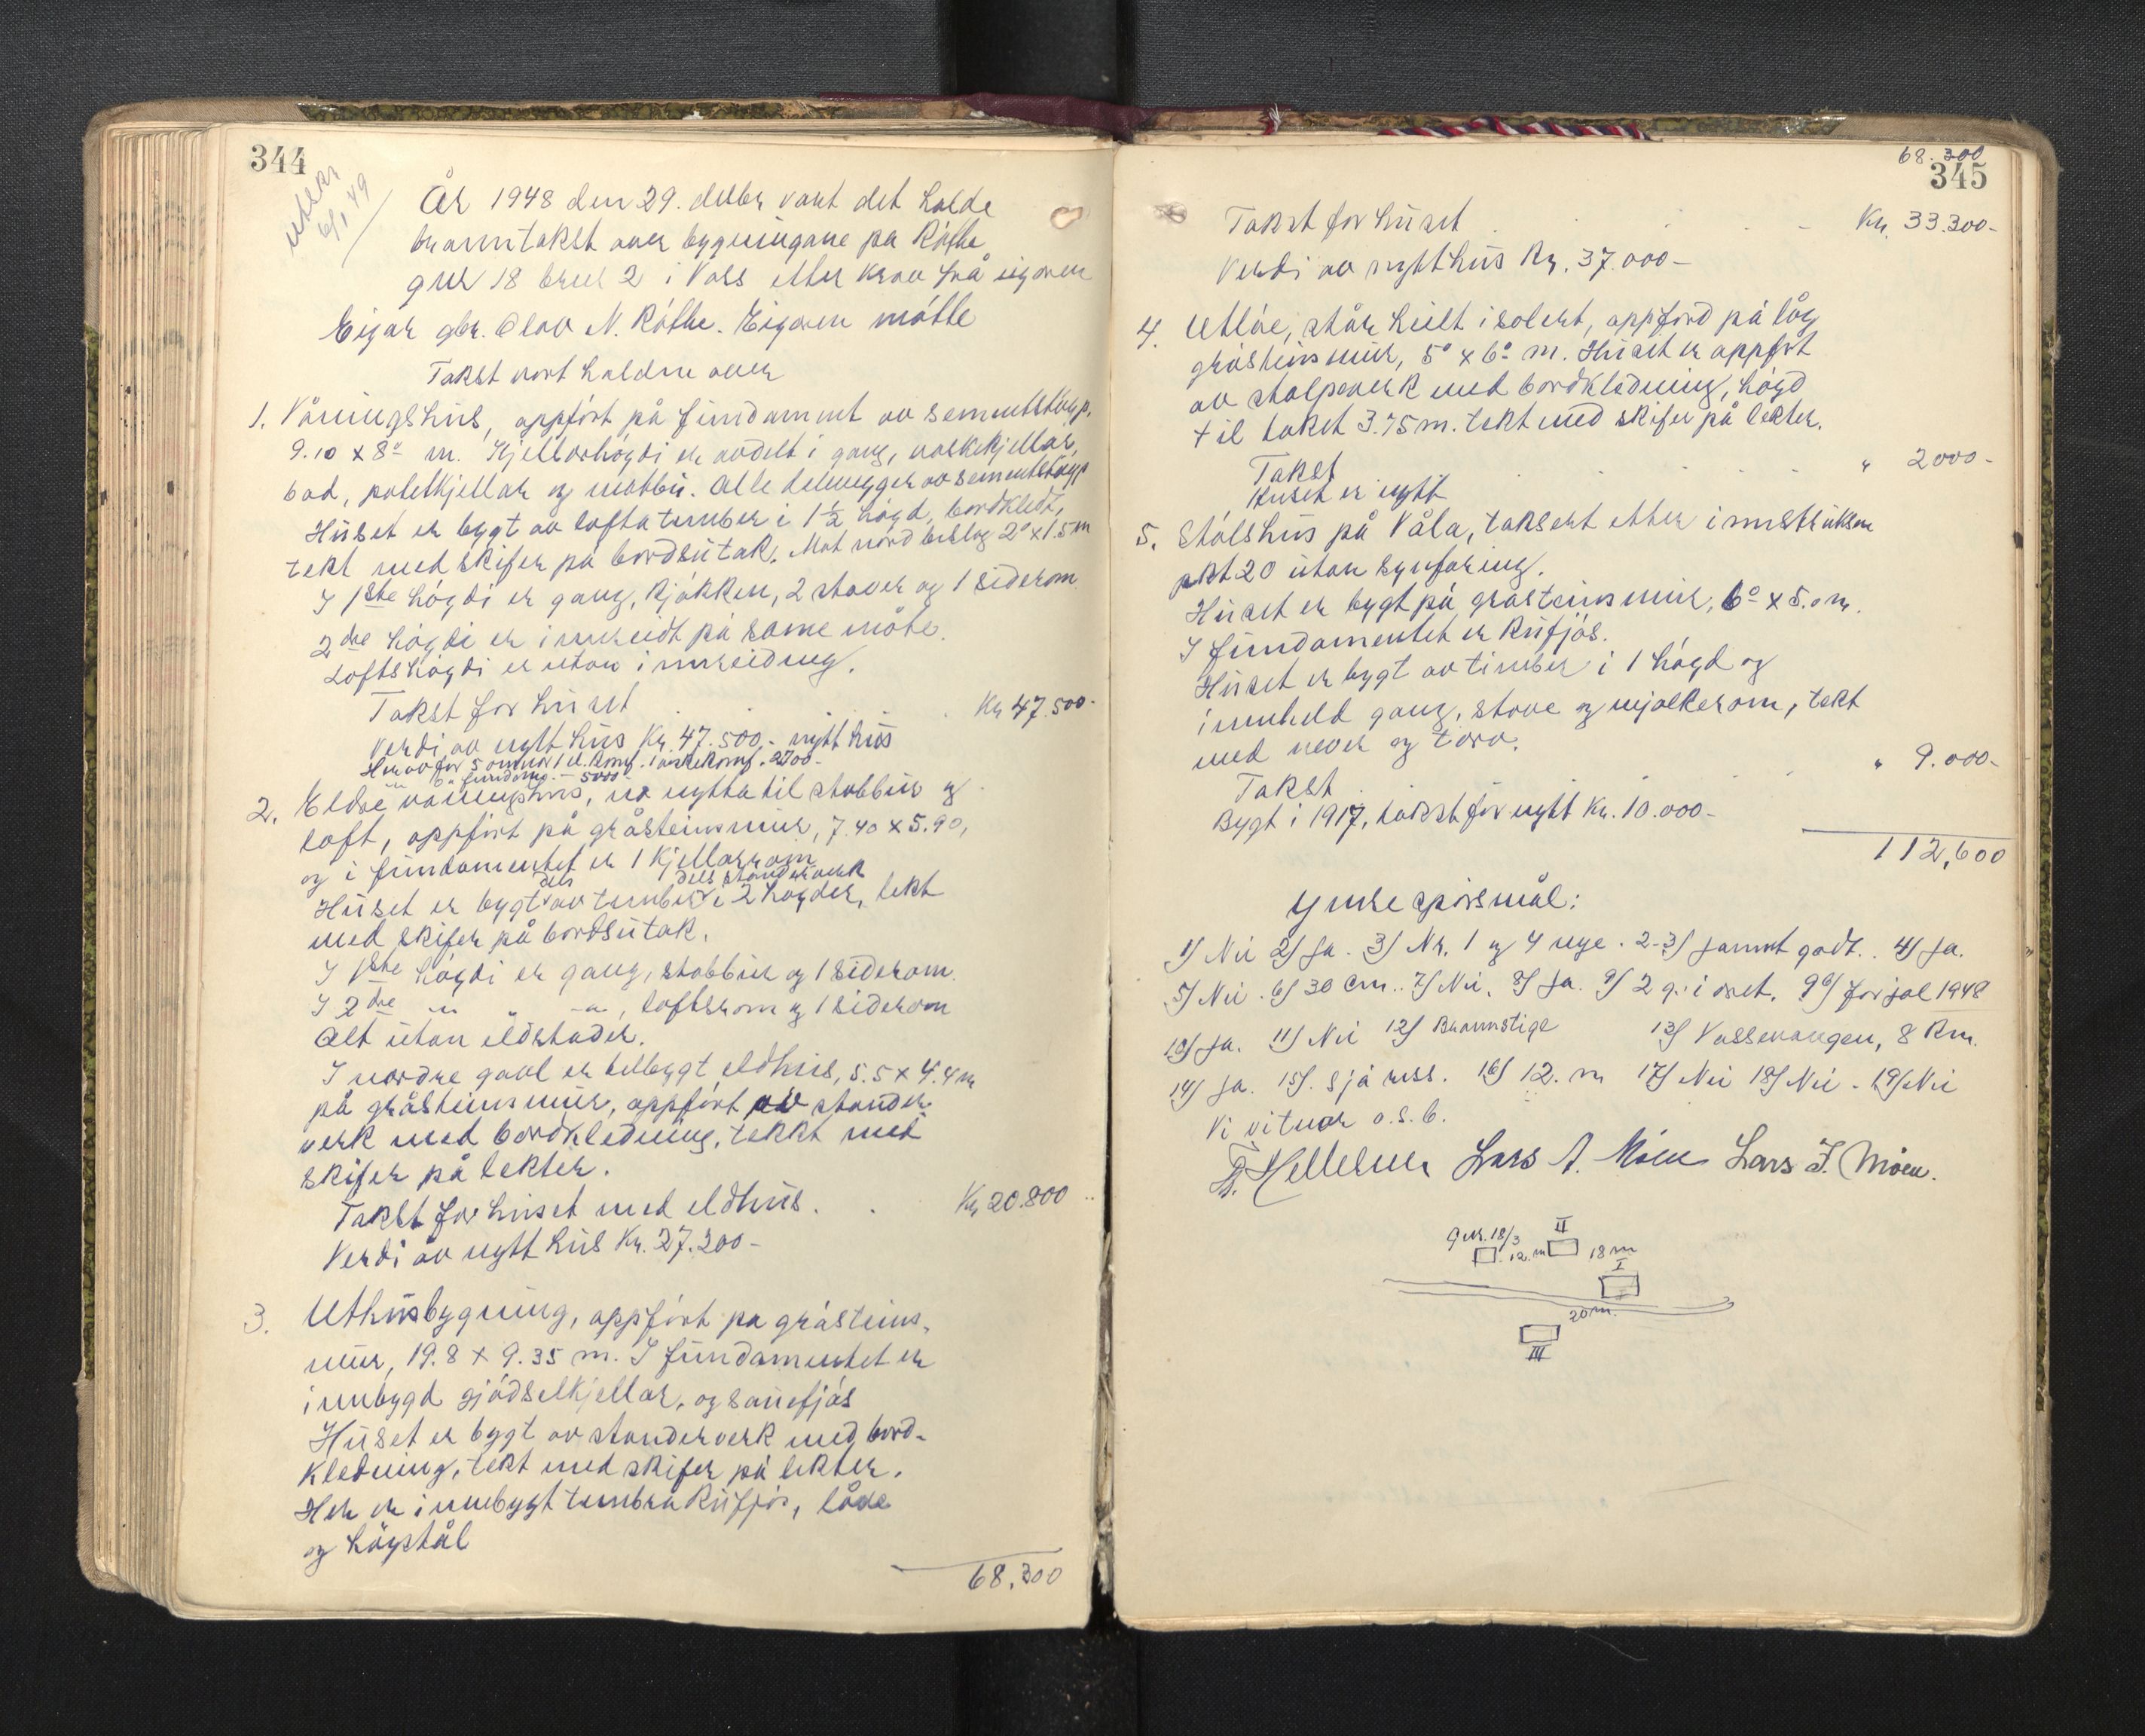 344
utskr.
6/1 49
År 1948 den 29. desbr vart det halde
branntakst over bygningane på Røthe
gnr 18 bnr 2 i Voss etter krav frå eigaren
Eigar gbr. Olav N. Røthe. Eigaren møtte
Takst vart halden over
1. Våningshus, oppført på fundament av sementstøyp,
9.10 x 8.0 m. Kjellarhøgdi er avdelt i gang, vaskekjellar,
bad, potetkjellar og matbu. Alle delevegger av sementstøyp
Huset er bygt av loftatimber i 1½ høgd, bordkledt,
tekt med skifer på bordsutak. Mot nord bislag 2.0 x 1.5 m
I 1ste høgdi er gang, kjøkken, 2 stover og 1 siderom
2dre høgdi er innreidt på same måte.
Loftshøgdi er utan innreiding.
Takst for huset Kr 47.500-
Verdi av nytt hus Kr. 47.500.- nytt hus
Herav for 5 omnar 1 el. komf. 1 vedkomf. 2700-
" " fundam. - 5000-
2. Eldre våningshus, no nytta til stabbur og
loft, oppført på gråsteinsmur, 7.40 x 5.90,
og i fundamentet er 1 kjellarrom
dels dels standerverk
Huset er bygt av timber i 2 høgder, tekt
med skifer på bordsutak.
I 1ste høgdi er gang, stabbur og 1 siderom.
I 2dre " " " , loftsrom og 1 siderom
Alt utan eldstader.
I nordre gavl er tilbygt eldhus, 5.5 x 4.4 m
på gråsteinsmur, oppført av stander-
verk med bordkledning, tekkt med
skifer på lekter.
Takst for huset med eldhus. Kr 20.800
Verdi av nytt hus Kr. 27.200-
3. Uthusbygning, oppført på gråsteins-
mur, 19.8 x 9.35 m. I fundamentet er
innbygd gjødselkjellar, og sauefjøs
Huset er bygt av standerverk med bord-
kledning, tekt med skifer på lekter.
Her er innebygt timbra kufjøs, låve
og høystål
68.300
68.300
345
Takst for huset Kr. 33.300-
Verdi av nytt hus Kr. 37.000-
4. Utløe, står heilt isolert, oppførd på låg
gråsteinsmur, 5.0 x 6.0 m. Huset er oppført
av stolpeverk med bordkledning, høgd
til taket 3.75 m. tekt med skifer på lekter.
Takst " 2000-
Huset er nytt
5. Stølshus på Våla, taksert etter instruksen
pkt 20 utan synfaring.
Huset er bygt på gråsteinsmur, 6.0 x 5.0 m.
I fundamentet er kufjøs.
Huset er bygt av timber i 1 høgd og
innheld gang, stove og mjølkerom, tekt
med never og torv.
Takst " 9.000-
Bygt i 1917, takst for nytt Kr. 10.000-
112,600
Ymse spørsmål:
1) Nei 2) Ja. 3) Nr. 1 og 4 nye. 2-3) jamnt godt. 4) Ja.
5) Nei. 6) 30 cm. 7) Nei. 8) Ja. 9) 2 g. i året. 9b) for jol 1948
10) Ja. 11) Nei 12) Brannstige 13) Vossevangen, 8 km.
14) Ja. 15) sjå riss. 16) 12. m 17) Nei 18) Nei - 19) Nei
Vi vitnar o.s.b.
Lars A. Møen Lars J. Møen.
gnr. 18/3 II
12. m 18 m
I
20 m.
III